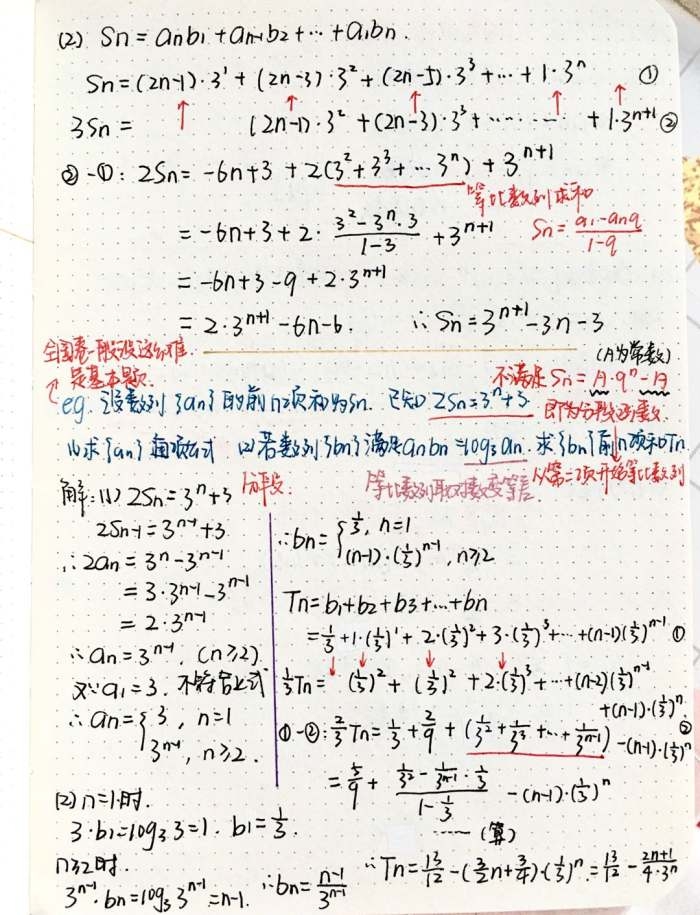 (2) Sn = anb1 + an-1b2 + ··· + a1bn.
Sn = (2n-1)·3¹ + (2n-3)·3² + (2n-5)·3³ + ··· + 1·3ⁿ ①
3Sn = (2n-1)·3² + (2n-3)·3³ + ········· + 1·3ⁿ⁺¹ ②
②-①: 2Sn = -6n+3 + 2(3²+3³+···3ⁿ) + 3ⁿ⁺¹
等比数列求和
= -6n+3+2· (3²-3ⁿ·3)/(1-3) + 3ⁿ⁺¹
Sn = (a1-anq)/(1-q)
= -6n+3-9+2·3ⁿ⁺¹
= 2·3ⁿ⁺¹-6n-6. ∴Sn=3ⁿ⁺¹-3n-3
全国卷一般没这么难
是基本题.
(A为常数)
不满足 Sn=A·qⁿ-A
即为分段函数.
eg. 设数列{an}的前n项和为Sn. 已知2Sn=3ⁿ+3.
(1)求{an}通项公式 (2)若数列{bn}满足anbn=log₃an. 求{bn}前n项和Tn.
从第二项开始等比数列
分段:
等比数列取对数变等差
解:(1) 2Sn=3ⁿ+3
2Sn-1=3ⁿ⁻¹+3
∴2an=3ⁿ-3ⁿ⁻¹
=3·3ⁿ⁻¹-3ⁿ⁻¹
=2·3ⁿ⁻¹
∴an=3ⁿ⁻¹. (n≥2)
又∵a1=3. 不符合上式
∴an={3, n=1
3ⁿ⁻¹, n≥2.
(2) n=1时.
3·b1=log₃3=1. b1=1/3.
n≥2时.
3ⁿ⁻¹·bn=log₃3ⁿ⁻¹=n-1. ∴bn=(n-1)/3ⁿ⁻¹
∴bn={1/3, n=1
(n-1)·(1/3)ⁿ⁻¹, n≥2
Tn=b1+b2+b3+···+bn
=1/3+1·(1/3)¹+2·(1/3)²+3·(1/3)³+···+(n-1)(1/3)ⁿ⁻¹ ①
1/3Tn= (1/3)²+(1/3)²+2·(1/3)³+···+(n-2)(1/3)ⁿ⁻¹
+(n-1)·(1/3)ⁿ. ②
①-②: 2/3Tn=1/3+2/9+(1/3²+1/3³+···+1/3ⁿ⁻¹)-(n-1)·(1/3)ⁿ
=5/9+(1/3²-1/3ⁿ⁻¹·1/3)/(1-1/3)-(n-1)·(1/3)ⁿ
······(算)
∴Tn=13/12-(3/2n+3/4)·(1/3)ⁿ.=13/12-(2n+1)/(4·3ⁿ)